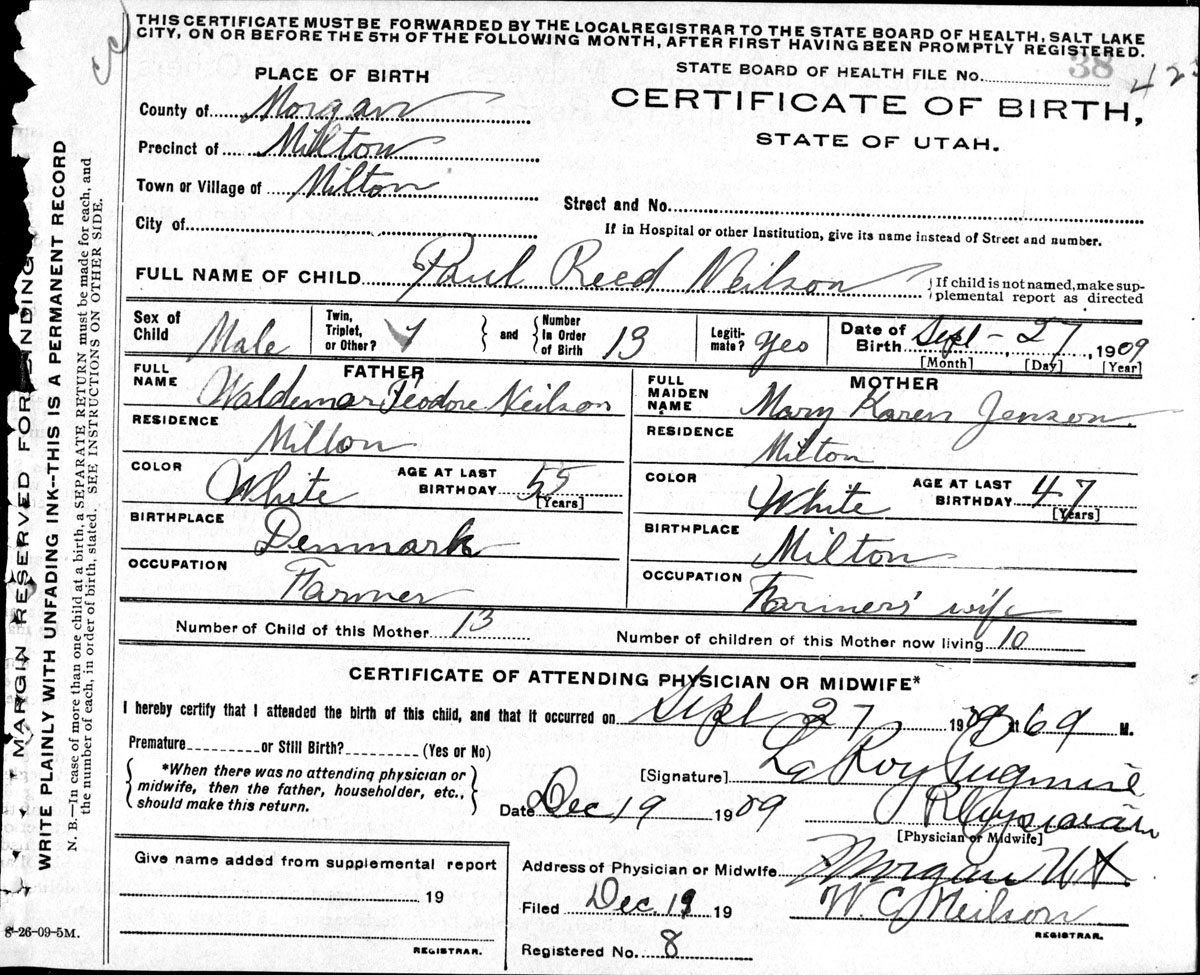 THIS CERTIFICATE MUST BE FORWARDED BY THE LOCAL REGISTRAR TO THE STATE BOARD OF HEALTH, SALT LAKE
CITY, ON OR BEFORE THE 5TH OF THE FOLLOWING MONTH, AFTER FIRST HAVING BEEN PROMPTLY REGISTERED.
PLACE OF BIRTH
STATE BOARD OF HEALTH FILE No. 38 42
County of Morgan
CERTIFICATE OF BIRTH,
Precinct of Milton
STATE OF UTAH.
Town or Village of Milton
Street and No.
City of
If in Hospital or other Institution, give its name instead of Street and number.
FULL NAME OF CHILD Paul Reed Neilson
{If child is not named, make sup-
plemental report as directed
Sex of Child Male
Twin, Triplet, or Other?
and
Number In Order of Birth 13
Legiti-mate? Yes
Date of Birth Sept - 27, 1909
[Month] [Day] [Year]
FATHER
FULL NAME Waldemar Teodore Neilson
RESIDENCE Milton
COLOR White
AGE AT LAST BIRTHDAY 55
[Years]
BIRTHPLACE Denmark
OCCUPATION Farmer
MOTHER
FULL MAIDEN NAME Mary Karen Jenson
RESIDENCE Milton
COLOR White
AGE AT LAST BIRTHDAY 47
[Years]
BIRTHPLACE Milton
OCCUPATION Farmers' wife
Number of Child of this Mother 13
Number of children of this Mother now living 10
CERTIFICATE OF ATTENDING PHYSICIAN OR MIDWIFE*
I hereby certify that I attended the birth of this child, and that it occurred on Sept 27 1909 at M.
Premature or Still Birth? (Yes or No)
*When there was no attending physician or
midwife, then the father, householder, etc.,
should make this return.
[Signature] La Roy
Date Dec 19 1909
Physician
[Physician or Midwife]
Give name added from supplemental report
19
REGISTRAR.
Address of Physician or Midwife Morgan Ut
Filed Dec. 19 19
W. G. Neilson
REGISTRAR.
Registered No. 8
8-26-09-5M.
MARGIN RESERVED FOR BINDING
WRITE PLAINLY WITH UNFADING INK--THIS IS A PERMANENT RECORD
N. B.—In case of more than one child at a birth, a SEPARATE RETURN must be made for each, and
the number of each, in order of birth, stated. SEE INSTRUCTIONS ON OTHER SIDE.